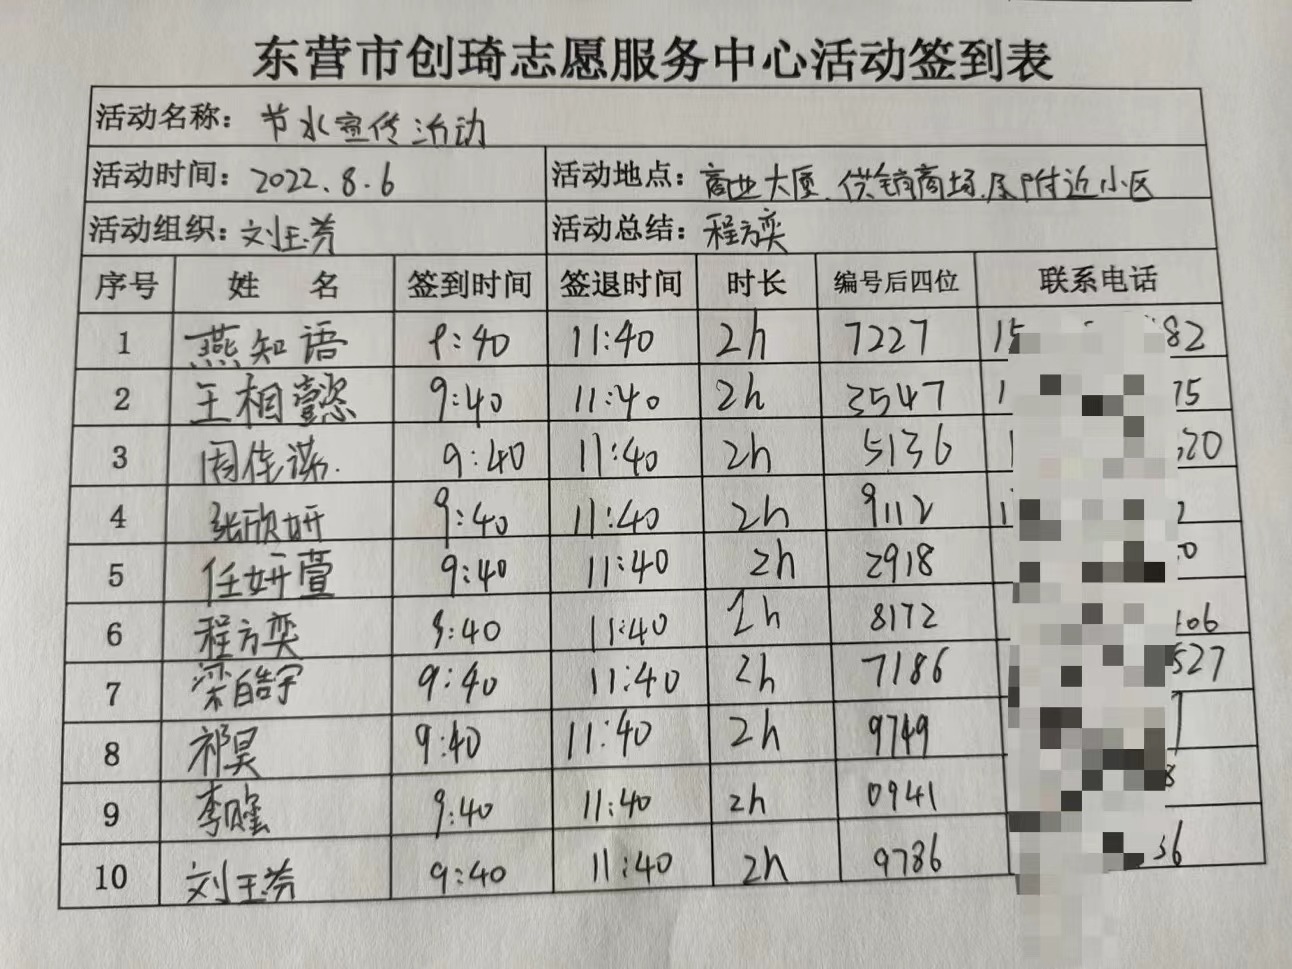 东营市创琦志愿服务中心活动签到表
活动名称：节水宣传活动
活动时间：2022.8.6 活动地点：商业大厦、供销商场及附近小区
活动组织：刘玉芳 活动总结：程方奕
序号 姓 名 签到时间 签退时间 时长 编号后四位 联系电话
1 燕知语 9:40 11:40 2h 7227 15 82
2 王相懿 9:40 11:40 2h 3547 1 75
3 周佳诺 9:40 11:40 2h 5136 1 520
4 张欣妍 9:40 11:40 2h 9112 1 2
5 任妍萱 9:40 11:40 2h 2918 0
6 程方奕 9:40 11:40 2h 8172 06
7 栾皓宇 9:40 11:40 2h 7186 527
8 祁昊 9:40 11:40 2h 9749
9 李 9:40 11:40 2h 0941 8
10 刘玉芳 9:40 11:40 2h 9786 36